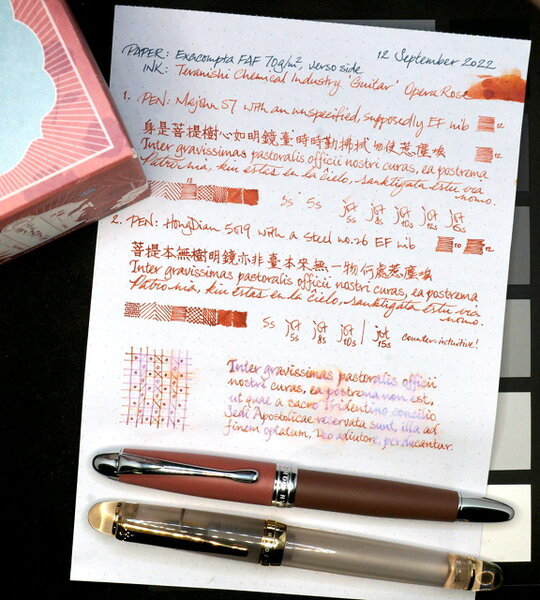 PAPER: Exacompta FAF 70g/m², verso side 12 September 2022
INK: Teranishi Chemical Industry 'Guitar' Opera Rose
1. PEN: Majohn S7 with an unspecified, supposedly EF nib
身是菩提樹心如明鏡臺時時勤拂拭勿使惹塵埃
Inter gravissimas pastoralis officii nostri curas, ea postrema
Patro nia, kiu estas en la ĉielo, sanktigata estu via
nomo.
5s 5s jot jot jot jot jot
5s 8s 10s 12s 15s
2. PEN: HongDian 5019 with a steel no.26 EF nib
菩提本無樹明鏡亦非臺本來無一物何處惹塵埃
Inter gravissimas pastoralis officii nostri curas, ea postrema
Patro nia, kiu estas en la ĉielo, sanktigata estu via
nomo.
5s jot jot jot jot counter-intuitive!
5s 8s 10s 15s
Inter gravissimas pastoralis officii
nostri curas, ea postrema non est,
ut quae a sacro Tridentino concilio
Sedi Apostolicae reservata sunt, illa ad
finem optatum, Deo adiutore, perducantur.